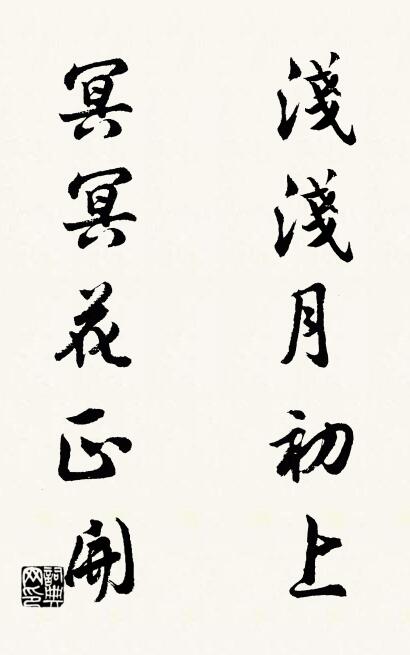 淺淺月初上
冥冥花正開
詞典网印